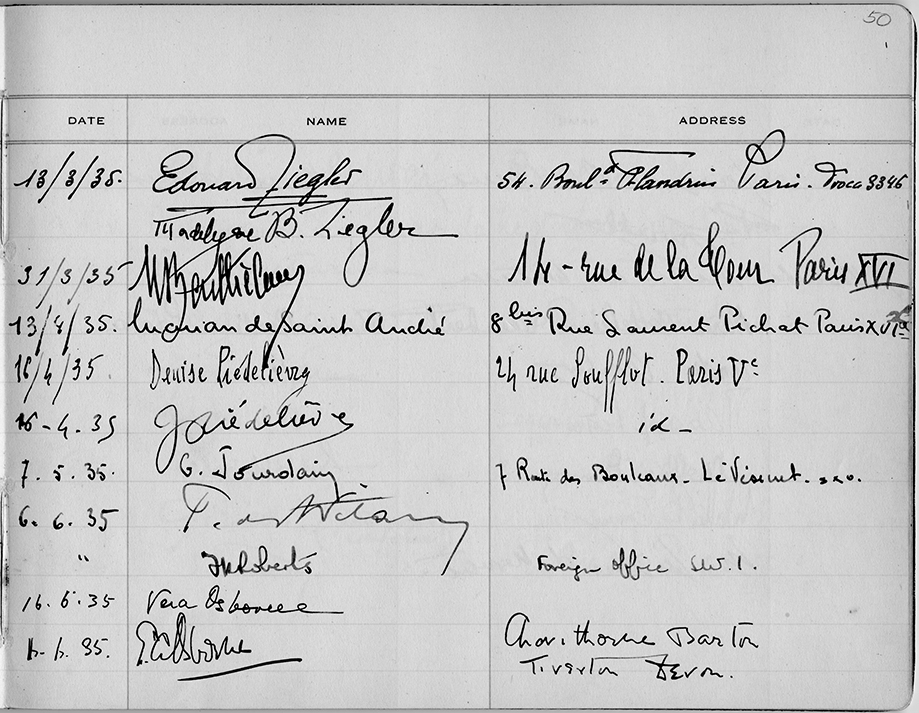 50
DATE NAME ADDRESS
13/3/35. Edouard Ziegler 54. Boul.d Flandrin Paris. Troca 3346
Madelyne B. Ziegler
31/3/35 14 - rue de la Tour Paris XVI
13/8/35. de Saint André 8 bis Rue Laurent Pichat Paris XVIe
16/4/35 Denise Piédelièvre 24 rue Soufflot. Paris Ve
16-4.35 Piédelièvre id -
7.5.35. G. Jourdain 7 Route des Bouleaux. Le Vésinet. S.&O.
6.6.35
" Roberts Foreign Office S.W.1.
16.6.35 Vera Osborne
35. Osborne Barton
Tiverton Devon.